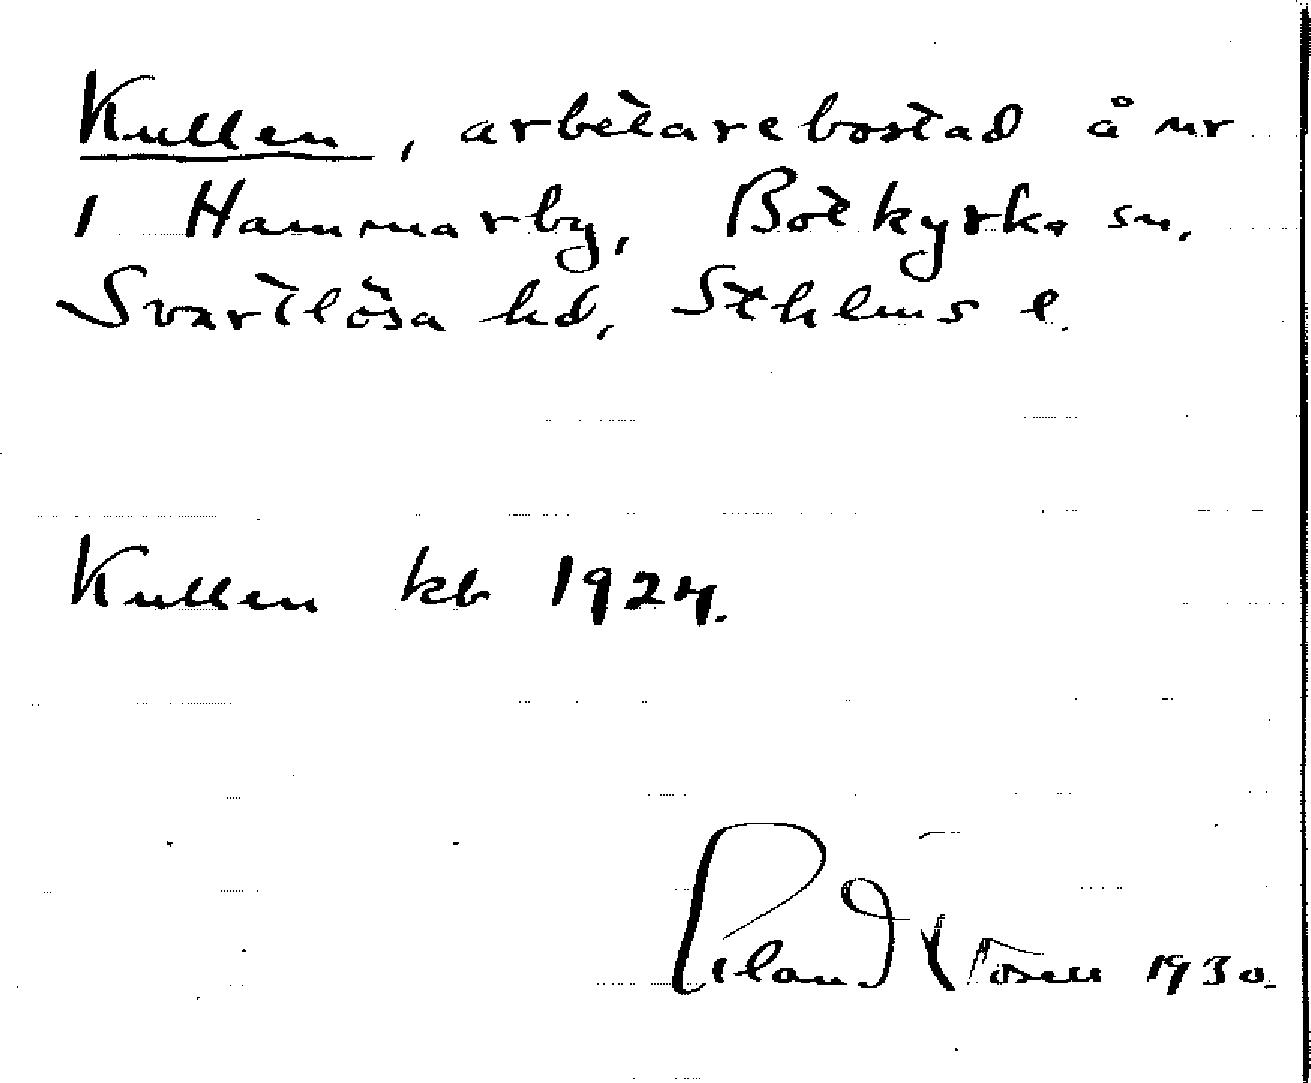 Kullen, arbetarebostad å nr
1 Hammarby, Botkyrka sn,
Svartlösa hd, Sthlms l.
Kullen kb 1924.
1930.